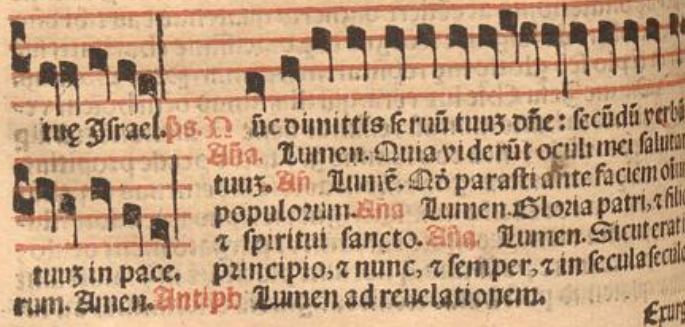 tuę Israel. p̄s. N ūc dimittis seruū tuuʒ dn̄e: secūdū verbū
Añа. Lumen. Quia viderūt oculi mei salutar
tuuʒ. Añ Lumē. Qḋ parasti ante faciem oīm
populorum. Aña Lumen. Gloria patri, ⁊ filio
⁊ spiritui sancto. Aña. Lumen. Sicut erat i
tuuʒ in pace. principio, ⁊ nunc, ⁊ semper, ⁊ in secula seculo
rum. Amen. Antiph Lumen ad reuelationem.
Exurg